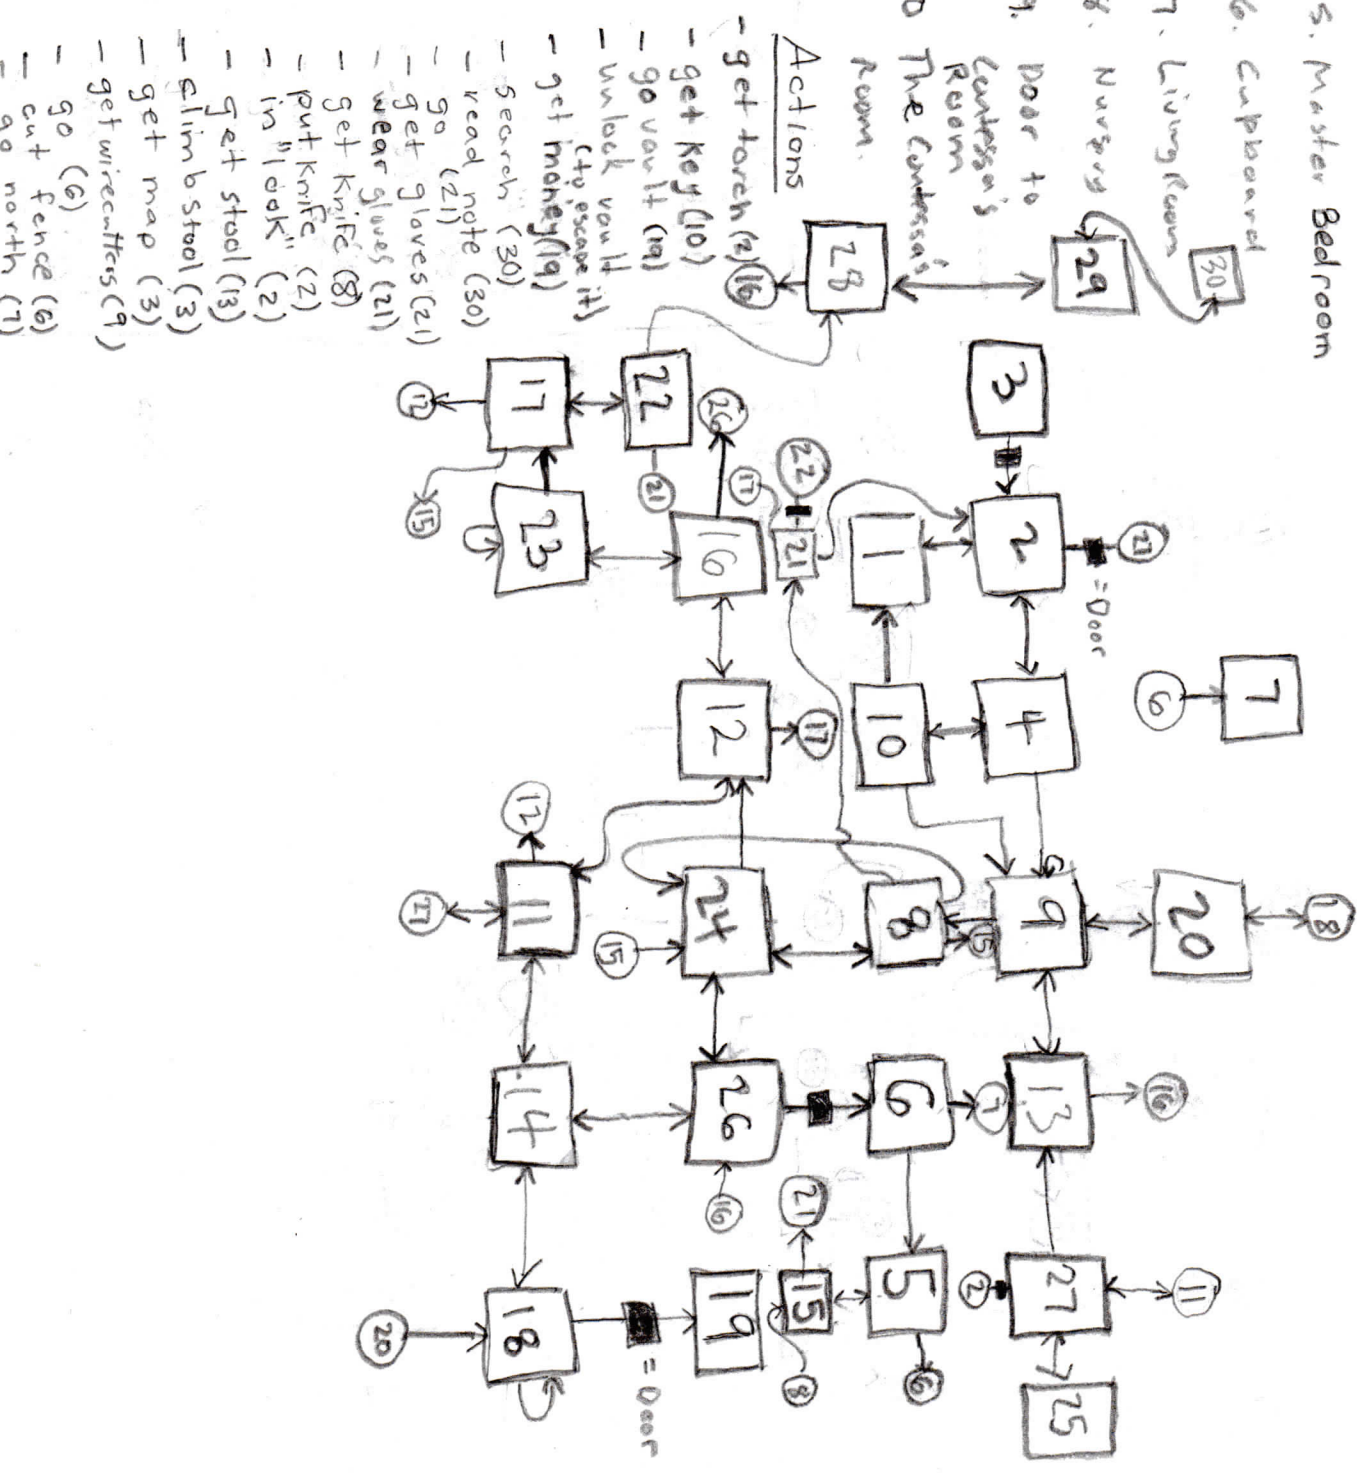 5. Master Bedroom
6. Cupboard
7. Living Room
8. Nursery
9. Door to
Contessa's
Room
0 The Contessa's
Room.
Actions
- get torch (2)
- get key (10)
- go vault (19)
- unlock vault
(to escape it)
- get money (19)
- search (30)
- read note (30)
- go (21)
- get gloves (21)
- wear gloves (21)
- get knife (8)
- put knife (2)
- in "look" (2)
- get stool (13)
- climb stool (3)
- get map (3)
- get wirecutters (9)
- go (6)
- cut fence (6)
- go north (7)
18
7
30
20
11
6
16
29
27
= Door
3
2
4
9
G
13
27
25
15
7
2
1
10
8
6
5
6
28
22
21
17
21
15
8
16
26
17
16
12
24
26
16
19
22
21
15
= Door
17
23
12
11
14
18
12
15
27
20